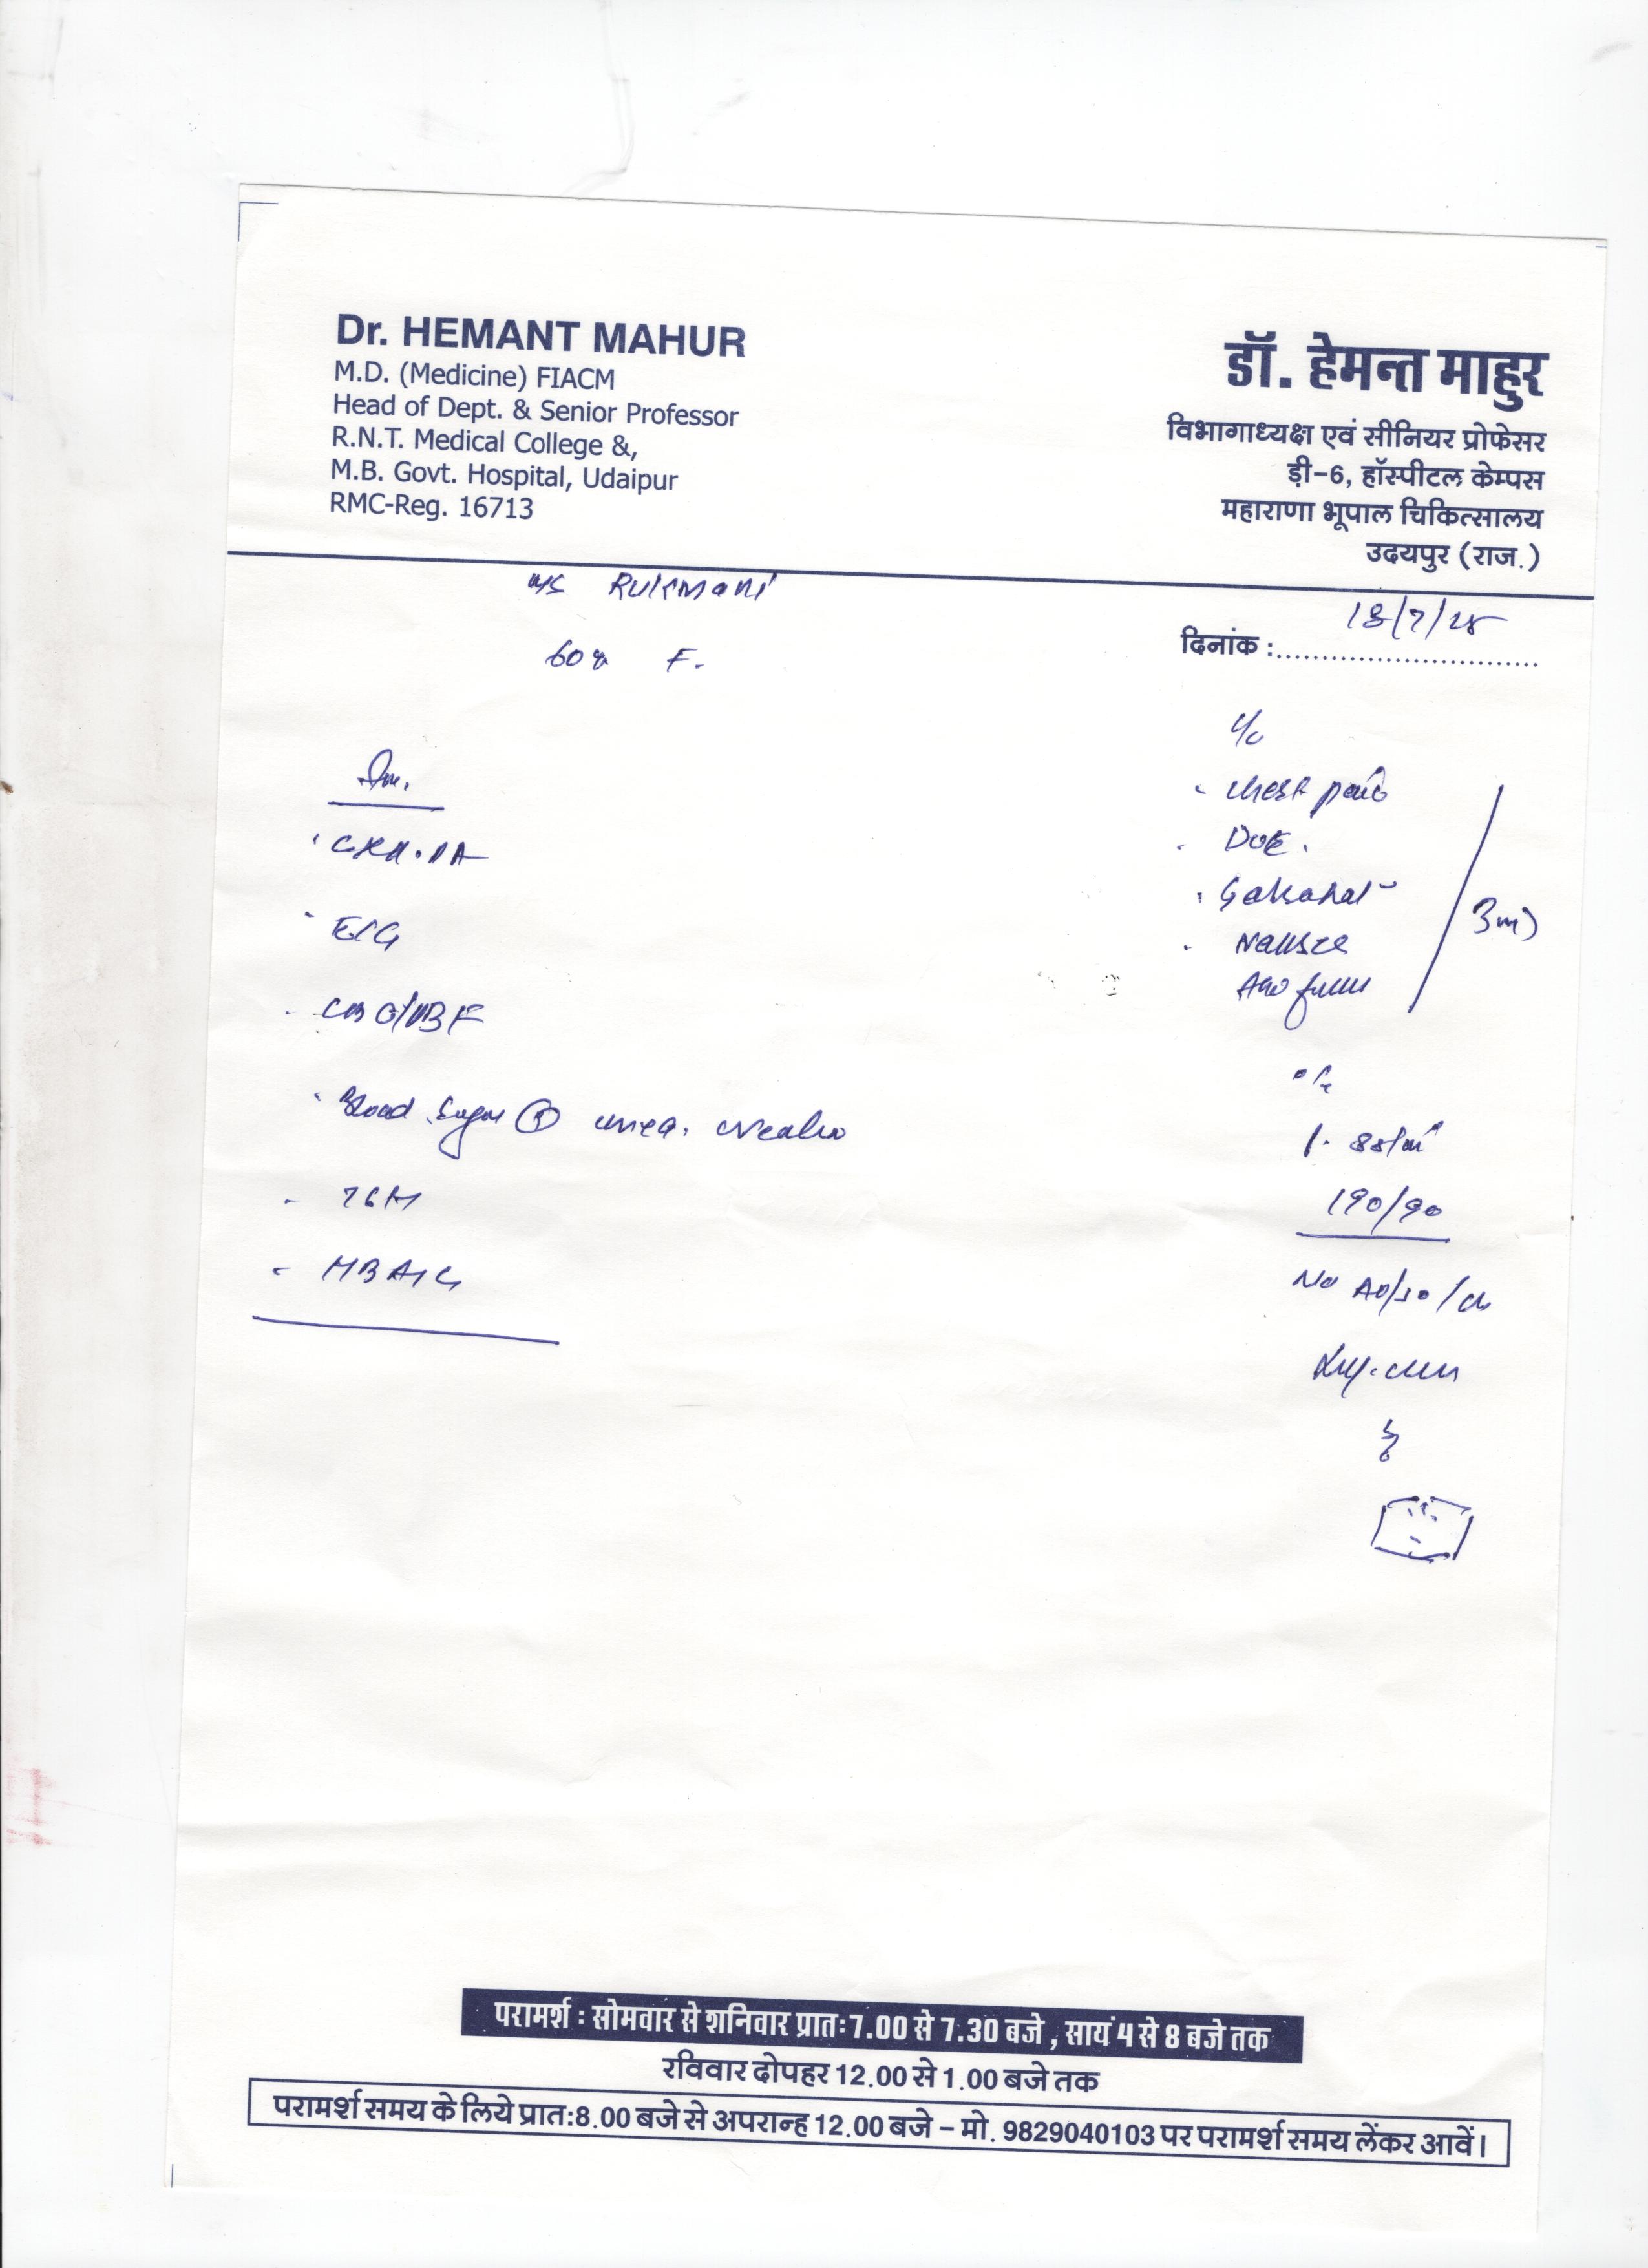 Dr. HEMANT MAHUR
M.D. (Medicine) FIACM
Head of Dept. & Senior Professor
R.N.T. Medical College &,
M.B. Govt. Hospital, Udaipur
RMC-Reg. 16713
डॉ. हेमन्त माहुर
विभागाध्यक्ष एवं सीनियर प्रोफेसर
ड़ी-6, हॉस्पीटल केम्पस
महाराणा भूपाल चिकित्सालय
उदयपुर (राज.)
Rukmani
60 F.
दिनांक : 18/7/25
c/o
chest pain
DOE.
Gabrahat
Nausea
3m
o/e
190/90
Inv.
CXR.PA
ECG
CBC/PBF
Blood Sugar (R) urea, creatin
TSH
HBA1C
परामर्श : सोमवार से शनिवार प्रातः 7.00 से 7.30 बजे , सायं 4 से 8 बजे तक
रविवार दोपहर 12.00 से 1.00 बजे तक
परामर्श समय के लिये प्रातः 8.00 बजे से अपरान्ह 12.00 बजे – मो. 9829040103 पर परामर्श समय लेंकर आवें।